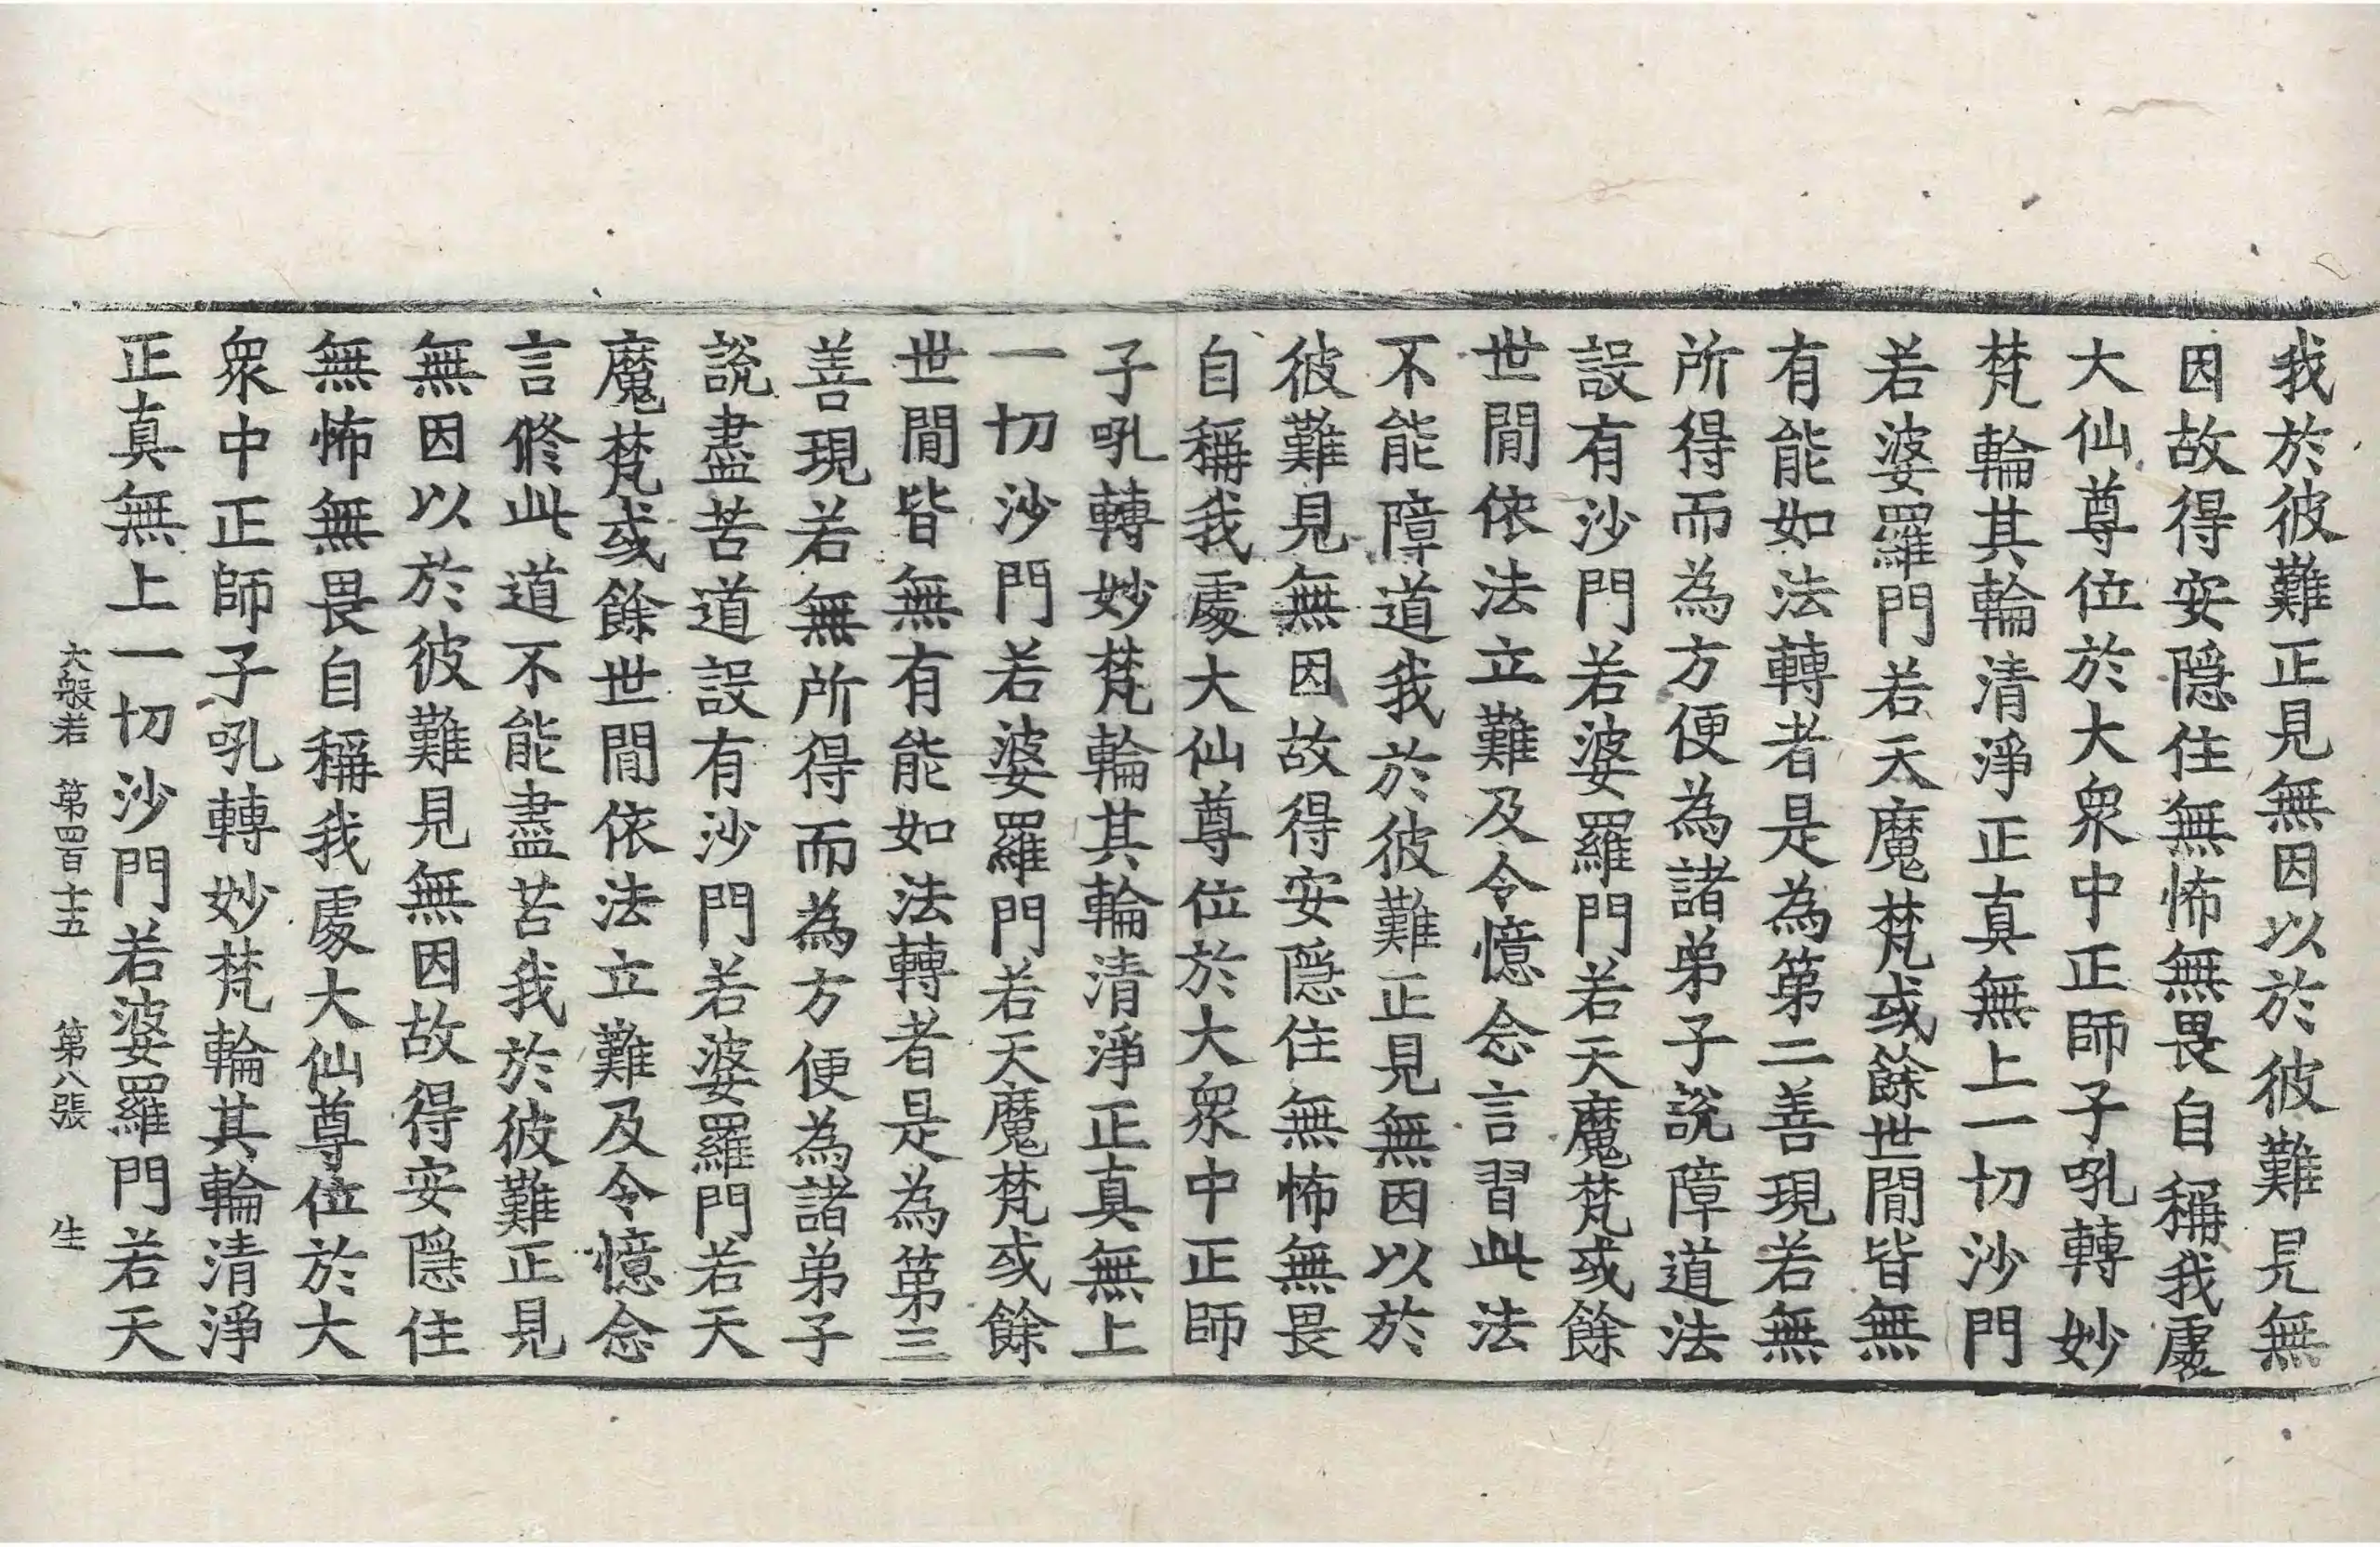 我於彼難正見無因以於彼難見無
因故得安隱住無怖無畏自稱我處
大仙尊位於大衆中正師子吼轉妙
梵輪其輪清淨正真無上一切沙門
若婆羅門若天魔梵或餘世間皆無
有能如法轉者是為第二善現若無
所得而為方便為諸弟子說障道法
設有沙門若婆羅門若天魔梵或餘
世間依法立難及令憶念言習此法
不能障道我於彼難正見無因以於
彼難見無因故得安隱住無怖無畏
自稱我處大仙尊位於大衆中正師
子吼轉妙梵輪其輪清淨正真無上
一切沙門若婆羅門若天魔梵或餘
世間皆無有能如法轉者是為第三
善現若無所得而為方便為諸弟子
說盡苦道設有沙門若婆羅門若天
魔梵或餘世間依法立難及令憶念
言修此道不能盡苦我於彼難正見
無因以於彼難見無因故得安隱住
無怖無畏自稱我處大仙尊位於大
衆中正師子吼轉妙梵輪其輪清淨
正真無上一切沙門若婆羅門若天
大般若 第四百十五 第八張 生